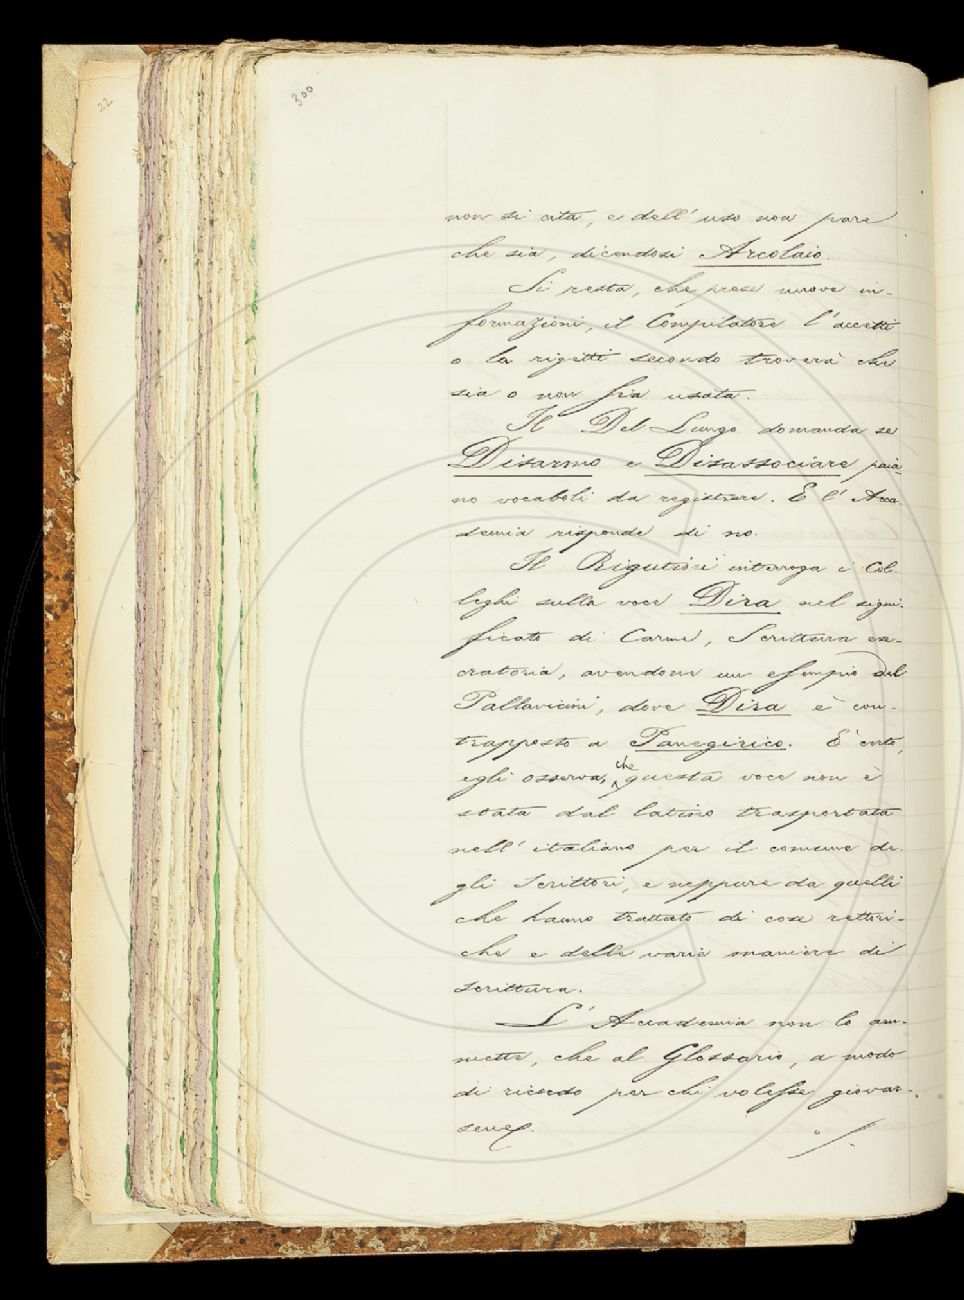 22
300
non si cita, e dell' uso non pare
che sia, dicendosi Arcolaio.
Si resta, che prese nuove in-
formazioni, il Compilatore l'accetti
o la rigetti secondo troverà che
sia o non sia usata.
Il Del Lungo domanda se
Disarmo e Disassociare paia-
no vocaboli da registrare. E l' Acca-
demia risponde di no.
Il Rigutini interroga i Col-
leghi sulla voce Dira nel signi-
ficato di Carme, Scrittura ese-
cratoria, avendone un esempio del
Pallavicini, dove Dira è con-
trapposto a Panegirico. E' certo,
egli osserva, che questa voce non è
stata dal latino trasportata
nell' italiano per il comune de-
gli Scrittori, e neppure da quelli
che hanno trattato di cose rettori-
che e delle varie maniere di
scrittura.
L' Accademia non lo am-
mette, che al Glossario, a modo
di ricordo per chi volesse giovar-
sene.